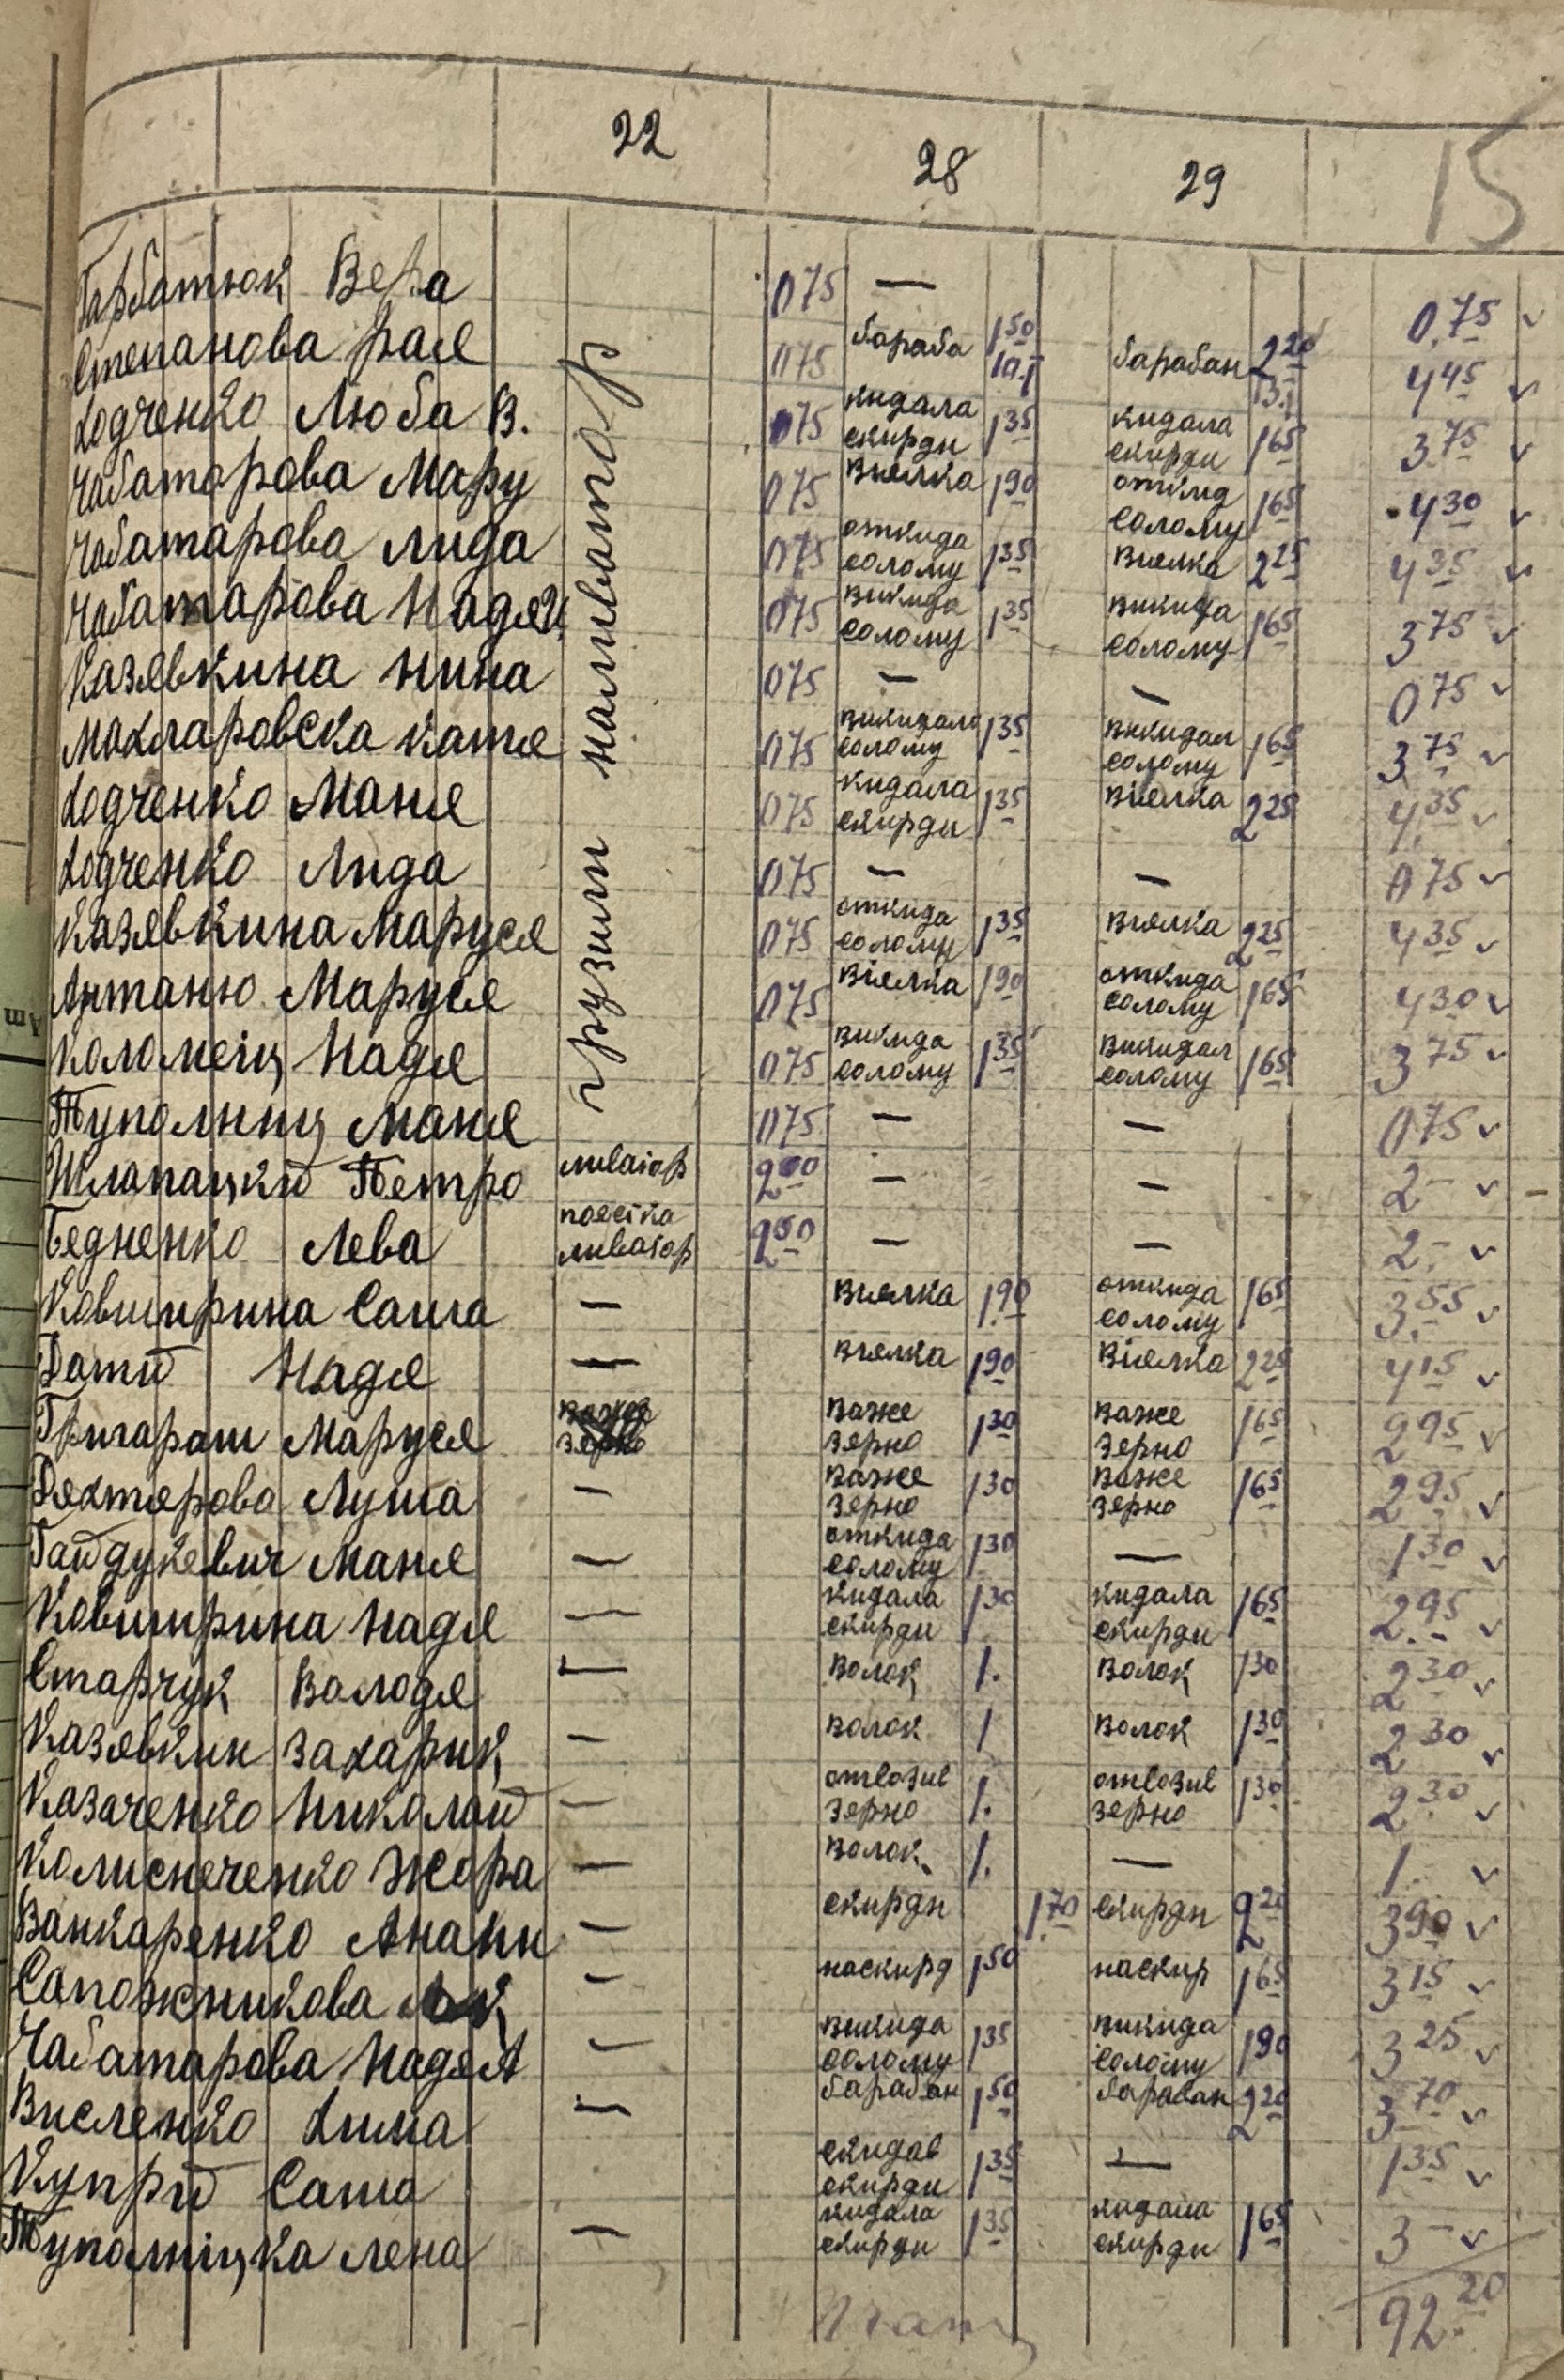 22 28 29 15
Гарбатюк Вера 075 — 0.75 ✓
Степанова Рая 075 бараба 1 50 барабан 2 20 4 45 ✓
10.1 13.1
Ходченко Люба В. 075 кидала скирди 1 35 кидала скирди 1 65 3 75 ✓
Чабатарова Мару 075 Виялка 1 90 откид солому 1 65 4 30 ✓
Чабатарова Лида 075 откида солому 1 35 Виялка 2 25 4 35 ✓
Чабатарова Надя И. 075 викида солому 1 35 викида солому 1 65 3 75 ✓
Казявкина Нина 075 — — 0 75 ✓
Махларовска Катя 075 викидала солому 1 35 викидал солому 1 65 3 75 ✓
Ходченко Маня 075 кидала скирди 1 35 Виялка 2 25 4 35 ✓
Ходченко Лида 075 — — 0 75 ✓
Казявкина Маруся 075 откида солому 1 35 Виялка 2 25 4 35 ✓
Антаню Маруся 075 Віялка 1 90 откида солому 1 65 4 30 ✓
Коломеіц Надя 075 викида солому 1 35 викидал солому 1 65 3 75 ✓
Туполниц Маня 075 — — 0 75 ✓
грузили наливатор
Шлапацкий Петро ливатор 2 00 — — 2 - ✓
Бедненко Лева поестка ливатор 2 00 — — 2. - ✓
Ковширина Саша — Виялка 1.90 откида солому 1 65 3 55 ✓
Датий Надя — Виялка 1 90 Віялка 2 25 4 15 ✓
Григараш Маруся Важе зерно 1 30 Важе зерно 1 65 2 95 ✓
Дяхтярова Луша — Важе зерно 1 30 Важе зерно 1 65 2 95 ✓
Гайдукевич Маня — откида солому 1 30 — 1 30 ✓
Ковширина Надя — кидала скирди 1 30 кидала скирди 1 65 2 95 ✓
Старчук Володя — Волок 1. Волок 1 30 2 30 ✓
Казявкин Захарик — Волок 1 Волок 1 30 2 30 ✓
Казаченко Николай — отвозив зерно 1. отвозив зерно 1 30 2 30 ✓
Колисниченко Жора — Волок 1. — 1. ✓
Ванкаренко Анани — скирди 1 70 скирди 2 20 3 90 ✓
Сапожникова — наскирд 1 50 наскир 1 65 3 15 ✓
Чабатарова Надя А — викида солому 1 35 викида солому 1 90 3 25 ✓
Висленко Хима — барабан 1 50 барабан 2 20 3 70 ✓
Куприй Саша скидав скирди 1 35 — 1 35 ✓
Туполніцка Лена — кидала скирди 1 35 кидала скирди 1 65 3 - ✓
92. 20